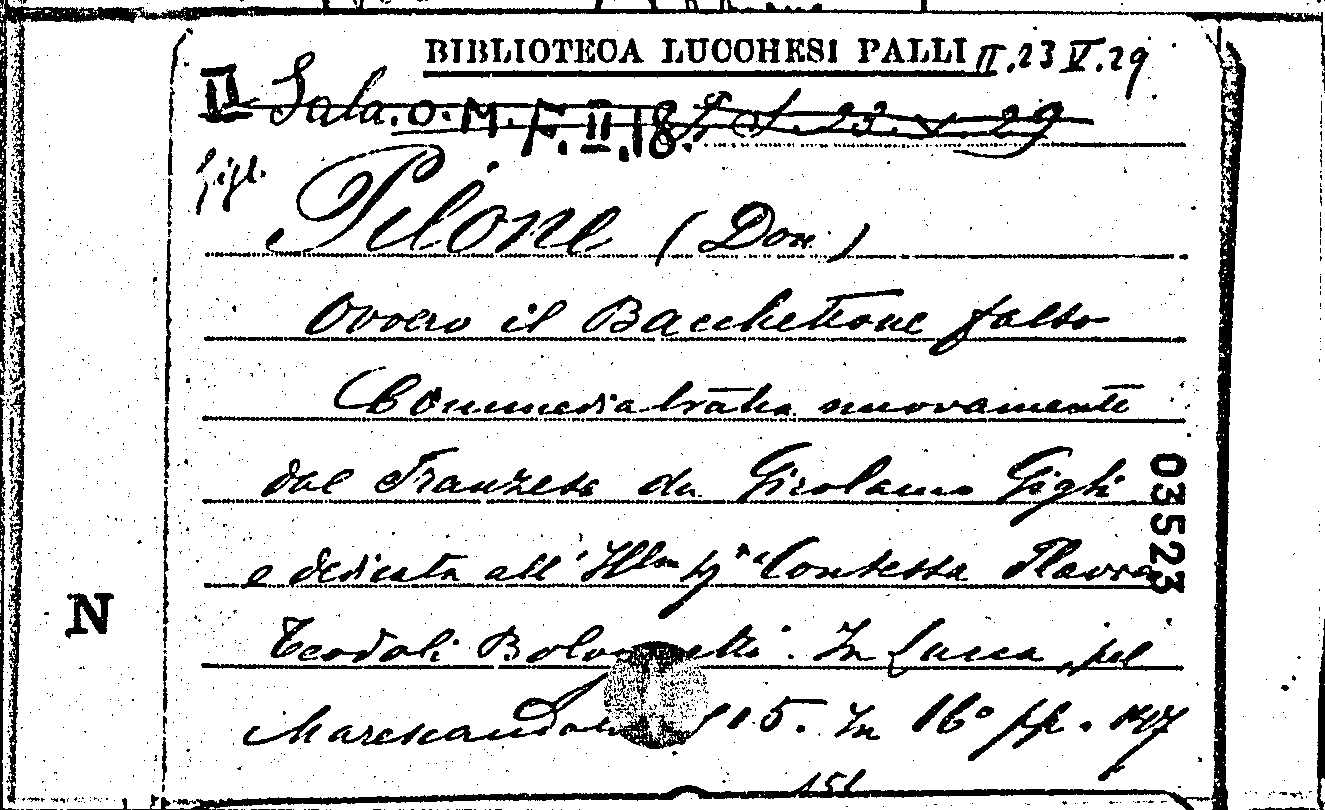 BIBLIOTECA LUCCHESI PALLI II.23 V.29
II Sala. O. M. F. II. 18.
Gigl.
Pilone (Don)
Ovvero il Bacchettone falso
Commedia tratta nuovamente
dal Franzese da Girolamo Gigli
e dedicata all' Contessa Flavia
Teodoli Bolognetti. In Lucca, pel
In 16° pp. 147
151
03523
N